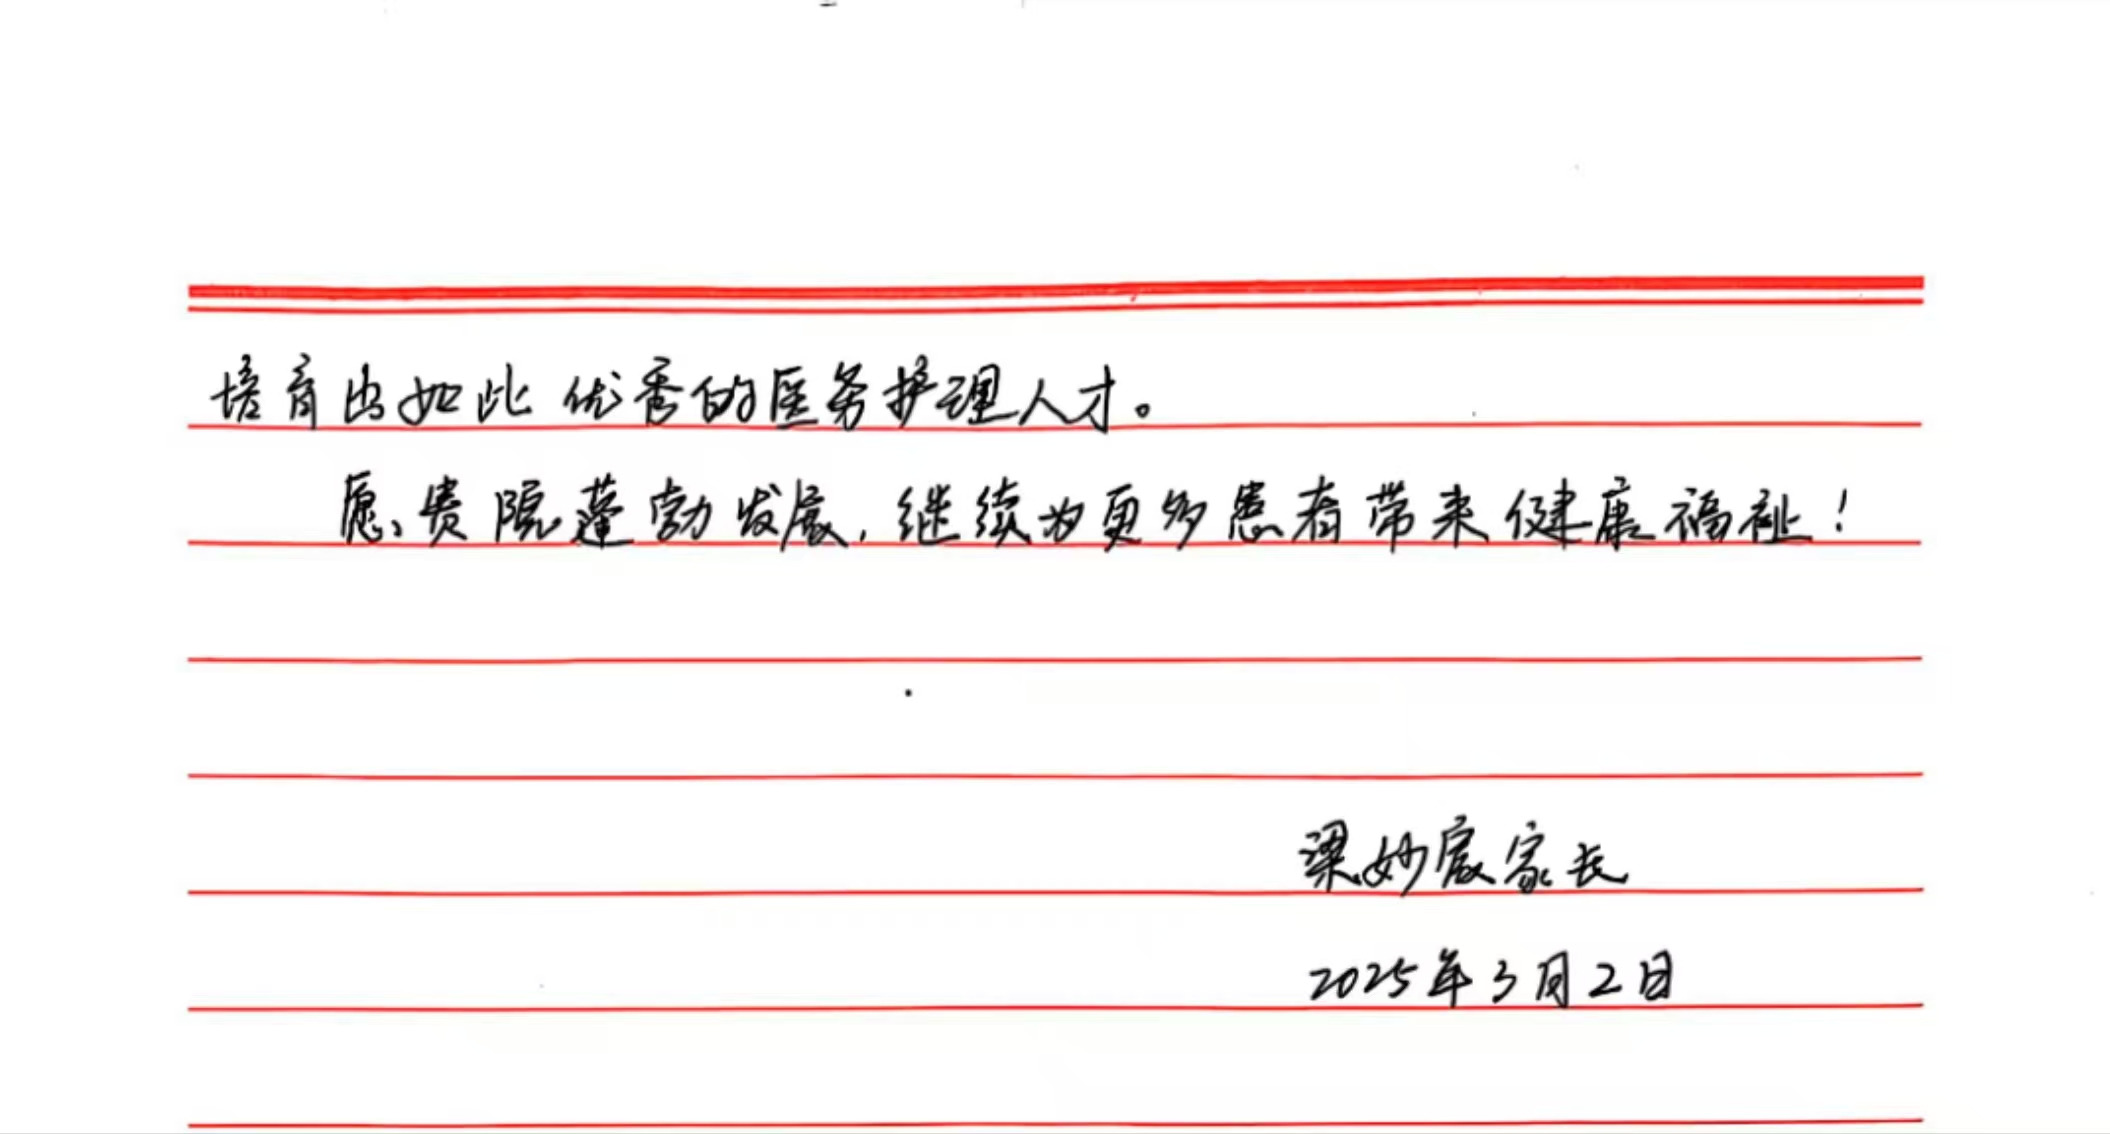 培育出如此优秀的医务护理人才。
愿贵院蓬勃发展，继续为更多患者带来健康福祉！
梁妙宸家长
2025年3月2日